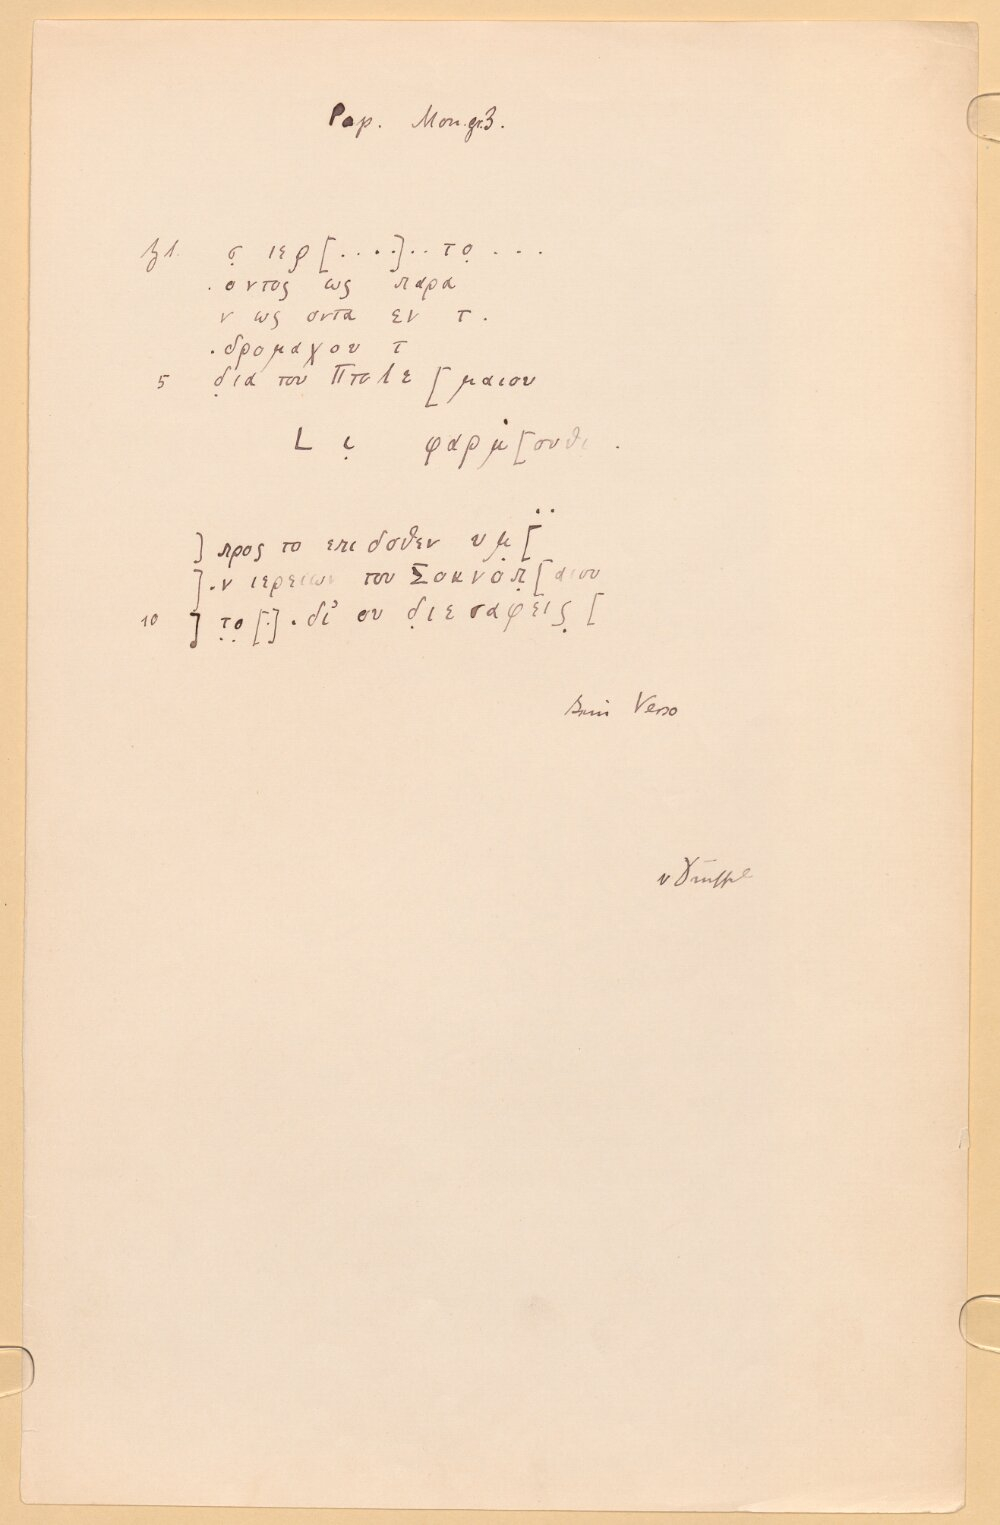 Pap. Mon. gr. 3.
σ̣ ιερ [. . . .] . . το̣ . . .
. οντος ως παρα
ν ως οντα εν τ .
. δρομαχου τ
5 δ̣ια του Πτολε [ μαιου
L ι̣ φαρμ [ουθι .
] προς το επιδοθεν υμ̣ [
] . ν ιερειων του Σοκνοπ̣ [αιου
10 ] τ̣ο̣ [.] . δι' ου δ̣ιεσαφεις̣ [
Verso